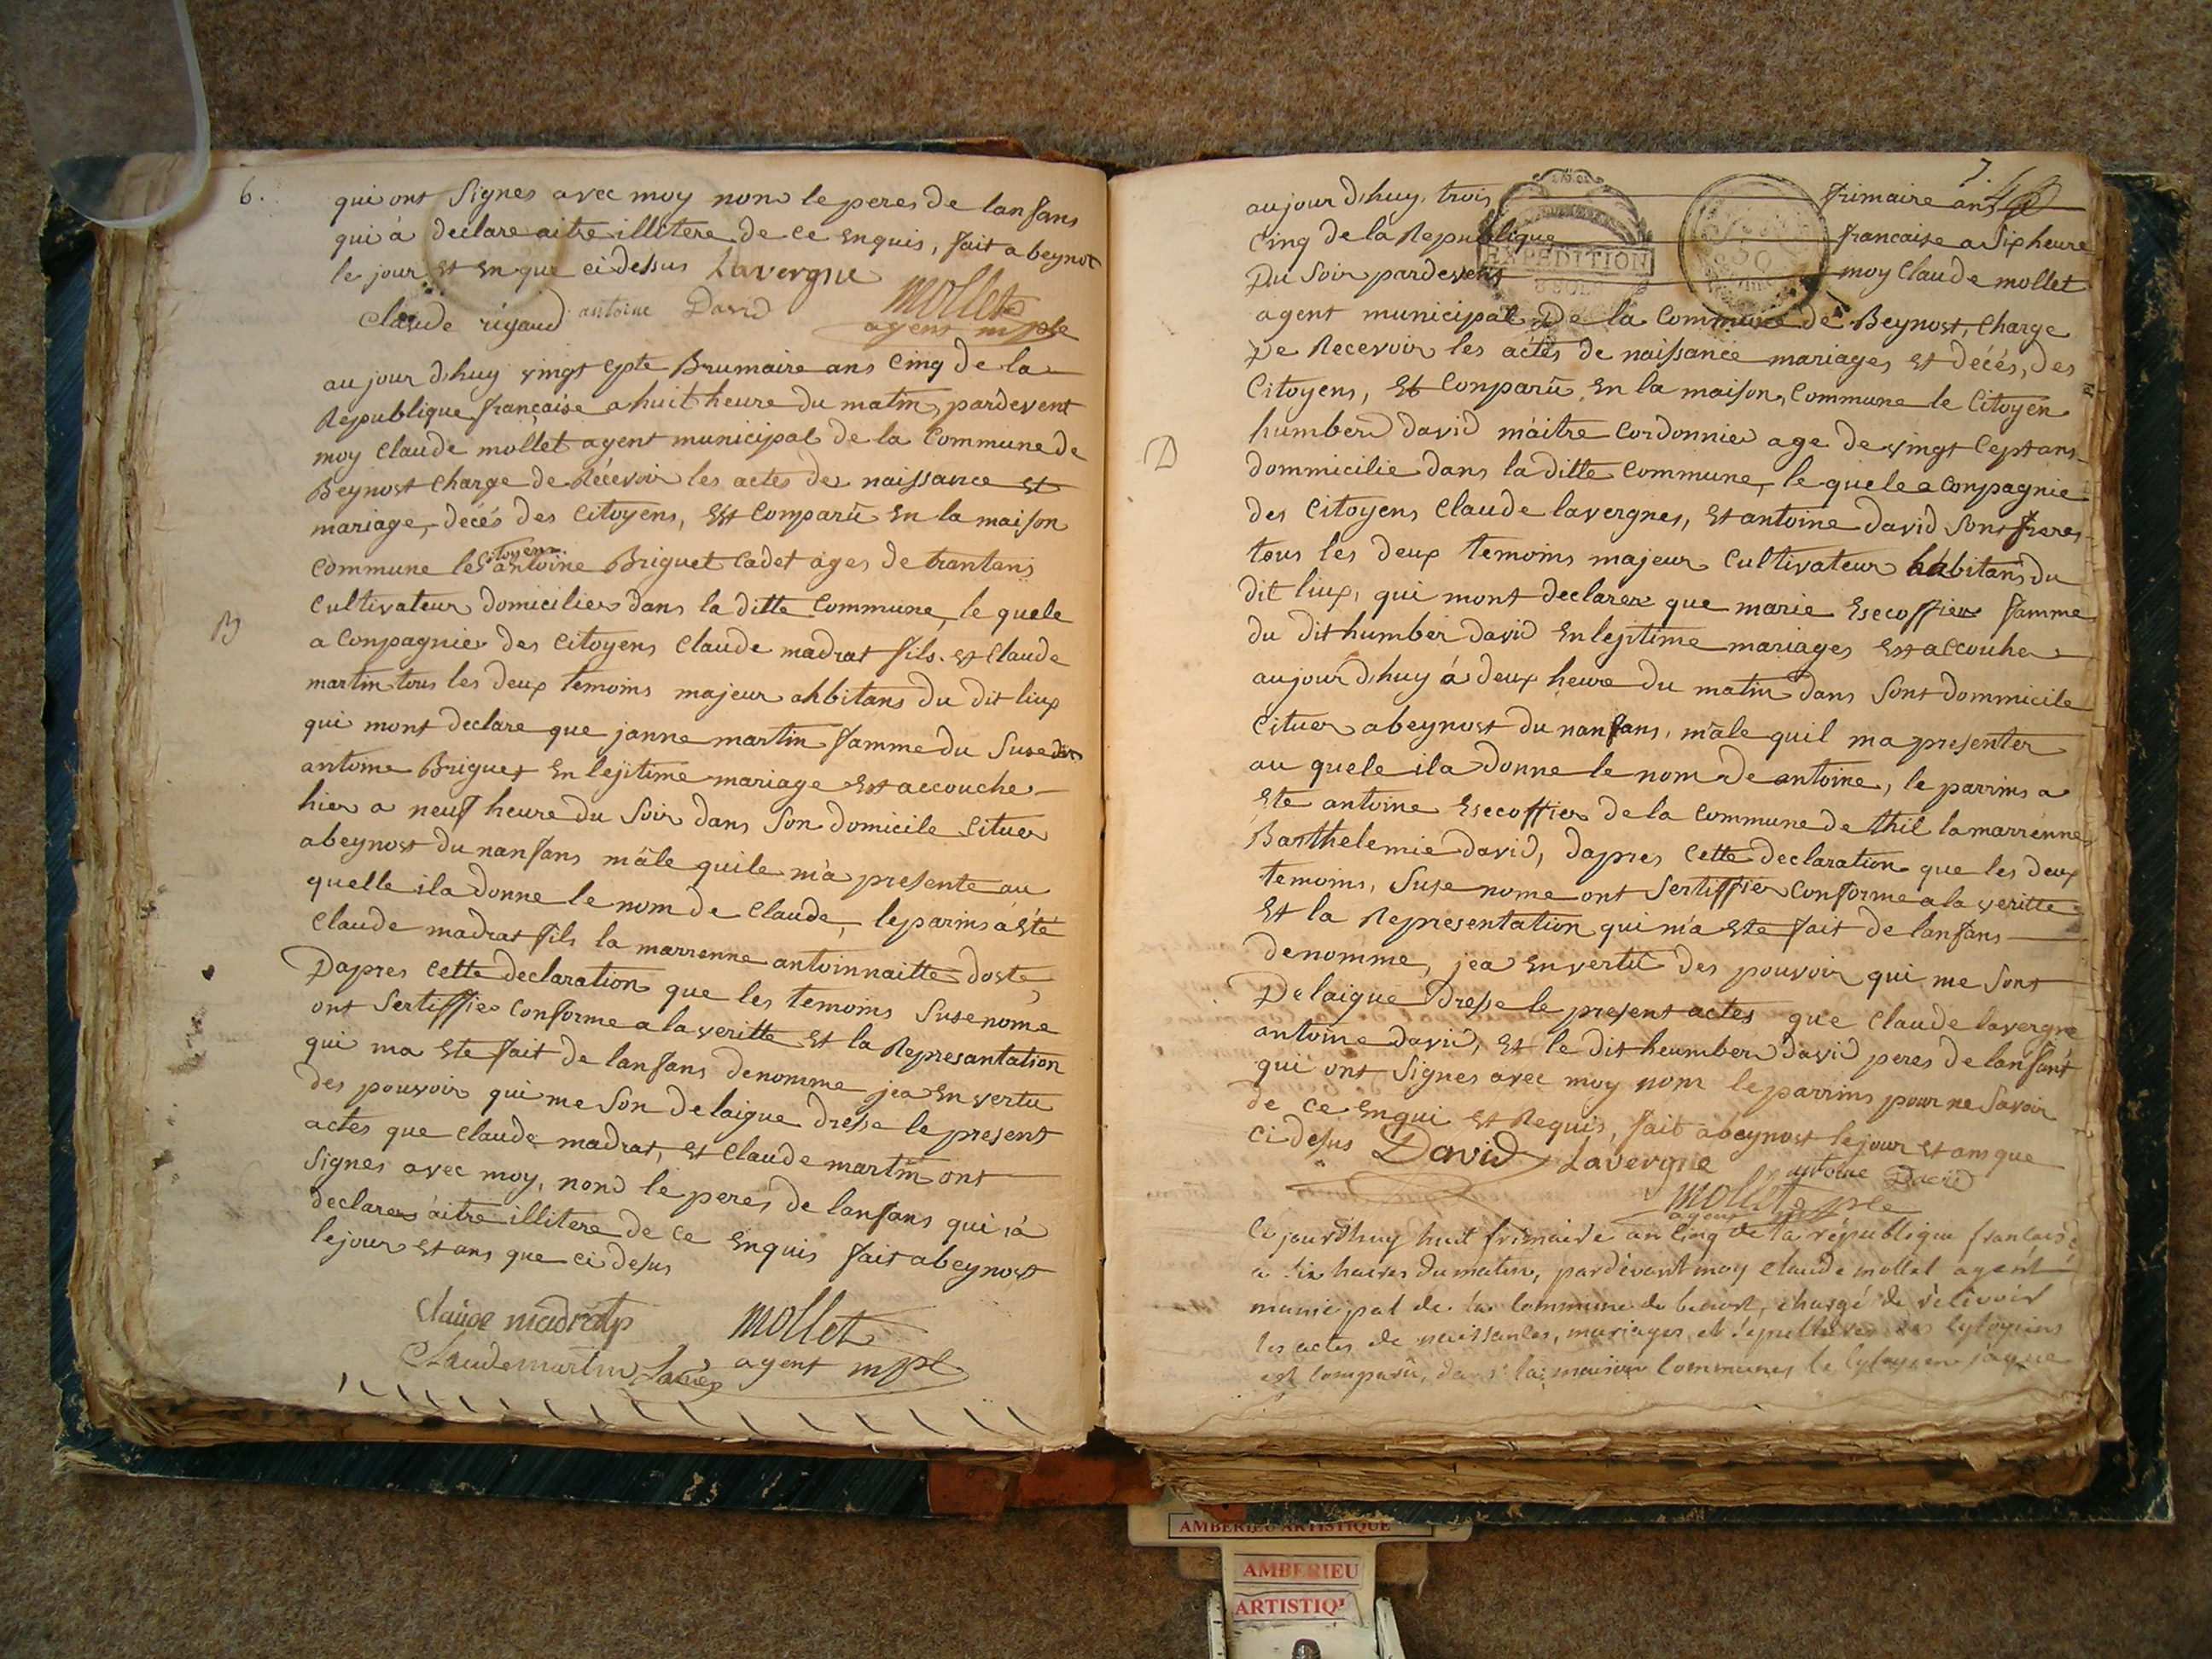 6.
qui ont Signes avec moy non le peres de lanfans
qui à declare aitre illitere de ce enquis, fait a beynot
le jour et en que ci dessus Lavergne
Claude rigaud antoine David Mollet
agent mple
aujourdhuy vingt cpte Brumaire ans Cinq de la
Republique française a huit heure du matin, pardevent
moy Claude mollet agent municipal de la Commune de
Beynost Charge de Récevoir les actes de naissance et
mariage, décés des Citoyens, Est Comparû En la maison
Commune le citoyen antoine Briguet Cadet ages de trantans
Cultivateur domicilier dans la ditte Commune, le quele
a Conpagnier des Citoyens Claude madrat fils. et Claude
martin tous les deux temoins majeur ahbitans du dit liux
qui mont declare que janne martin famme du Susedit
antoine Briguet En lejitime mariage Est accouche
hier a neuf heure du Soir dans Son domicile Cituer
abeynost du nanfans mâle quile m'a presente au
quelle ila donne le nom de Claude, le parins à été
Claude madrat fils la marrenne antoinnaitte doste,
Dapres Cette declaration que les temoins Susenome
ont Sertiffier Conforme a la veritte et la Represantation
qui ma ete fait de lanfans denomme jea en vertu
des pouvoir qui me Son delaigue dresse le present
actes que Claude madrat, et Claude martin ont
Signes avec moy, non le peres de lanfans qui à
declarer aitre illitere de ce enquis fait abeynost
le jour et ans que ci desus
Claude madrat Mollet
Claude martin agent mpl
B
7.
aujourdhuy trois frimaire ans
Cinq de la Republique francaise a Six heure
Du Soir pardevent moy Claude mollet
EXPEDITION
agent municipal De la Commune de Beynost, Charge
De Recevoir les actes de naissance mariages et décés, des
Citoyens, Et Conparû En la maison, Commune le Citoyen
humber david maitre Cordonnier age de vingt Cept ans
dommicilie dans la ditte Commune, le quele a Conpagnie
D
des Citoyens Claude lavergnes, et antoine david Sont freres
tous les deux temoins majeur Cultivateur habitans du
dit liux, qui mont declarer que marie Esecoffier famme
du dit humber david En lejitime mariages Est accouher
aujourdhuy á deux heure du matin dans Sont dommicile
Cituer abeynost du nanfans, mâle quil ma presenter
au quele ila donne le nom de antoine, le parrins a
Ete antoine Esecoffier de la Commune de thil la marrenne
Barthelemie david, dapres Cette declaration que les deux
temoins, Suse nome ont Sertiffier Conforme a la veritte
Et la Representation qui m'a Ete fait de lanfans
denomme, jea En vertû des pouvoir qui me Sont
Delaigue dresse le present actes que Claude lavergne
antoine david, et le dit heumber david peres de lanfant
qui ont Signes avec moy nom le parrins pour ne Savoir
de ce Enqui et Requis, fait abeynost le jour et ans que
ci desus David Lavergne
antoine David
Mollet
agent mple
Ce jourdhuy huit frimaire an Cinq de la république francaise
a dix heures du matin, pardevant moy Claude mollet agent
municipal de la Commune de benost, chargé de recevoir
les actes de naissances, mariages et sepultures des Cytoyens
est comparû, dans la maison Communes le Cytoyen
AMBERIEU ARTISTIQUE
AMBERIEU
ARTISTIQ